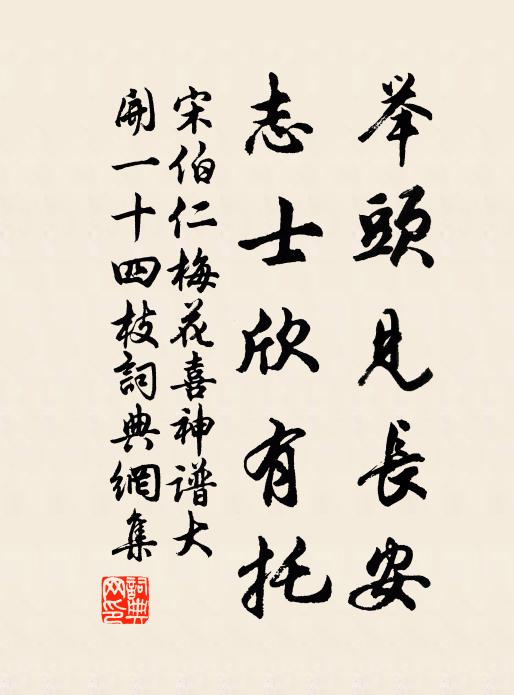 举頭見長安
志士欣有托
宋伯仁梅花喜神譜大
開一十四枝詞典網集
詞典網印